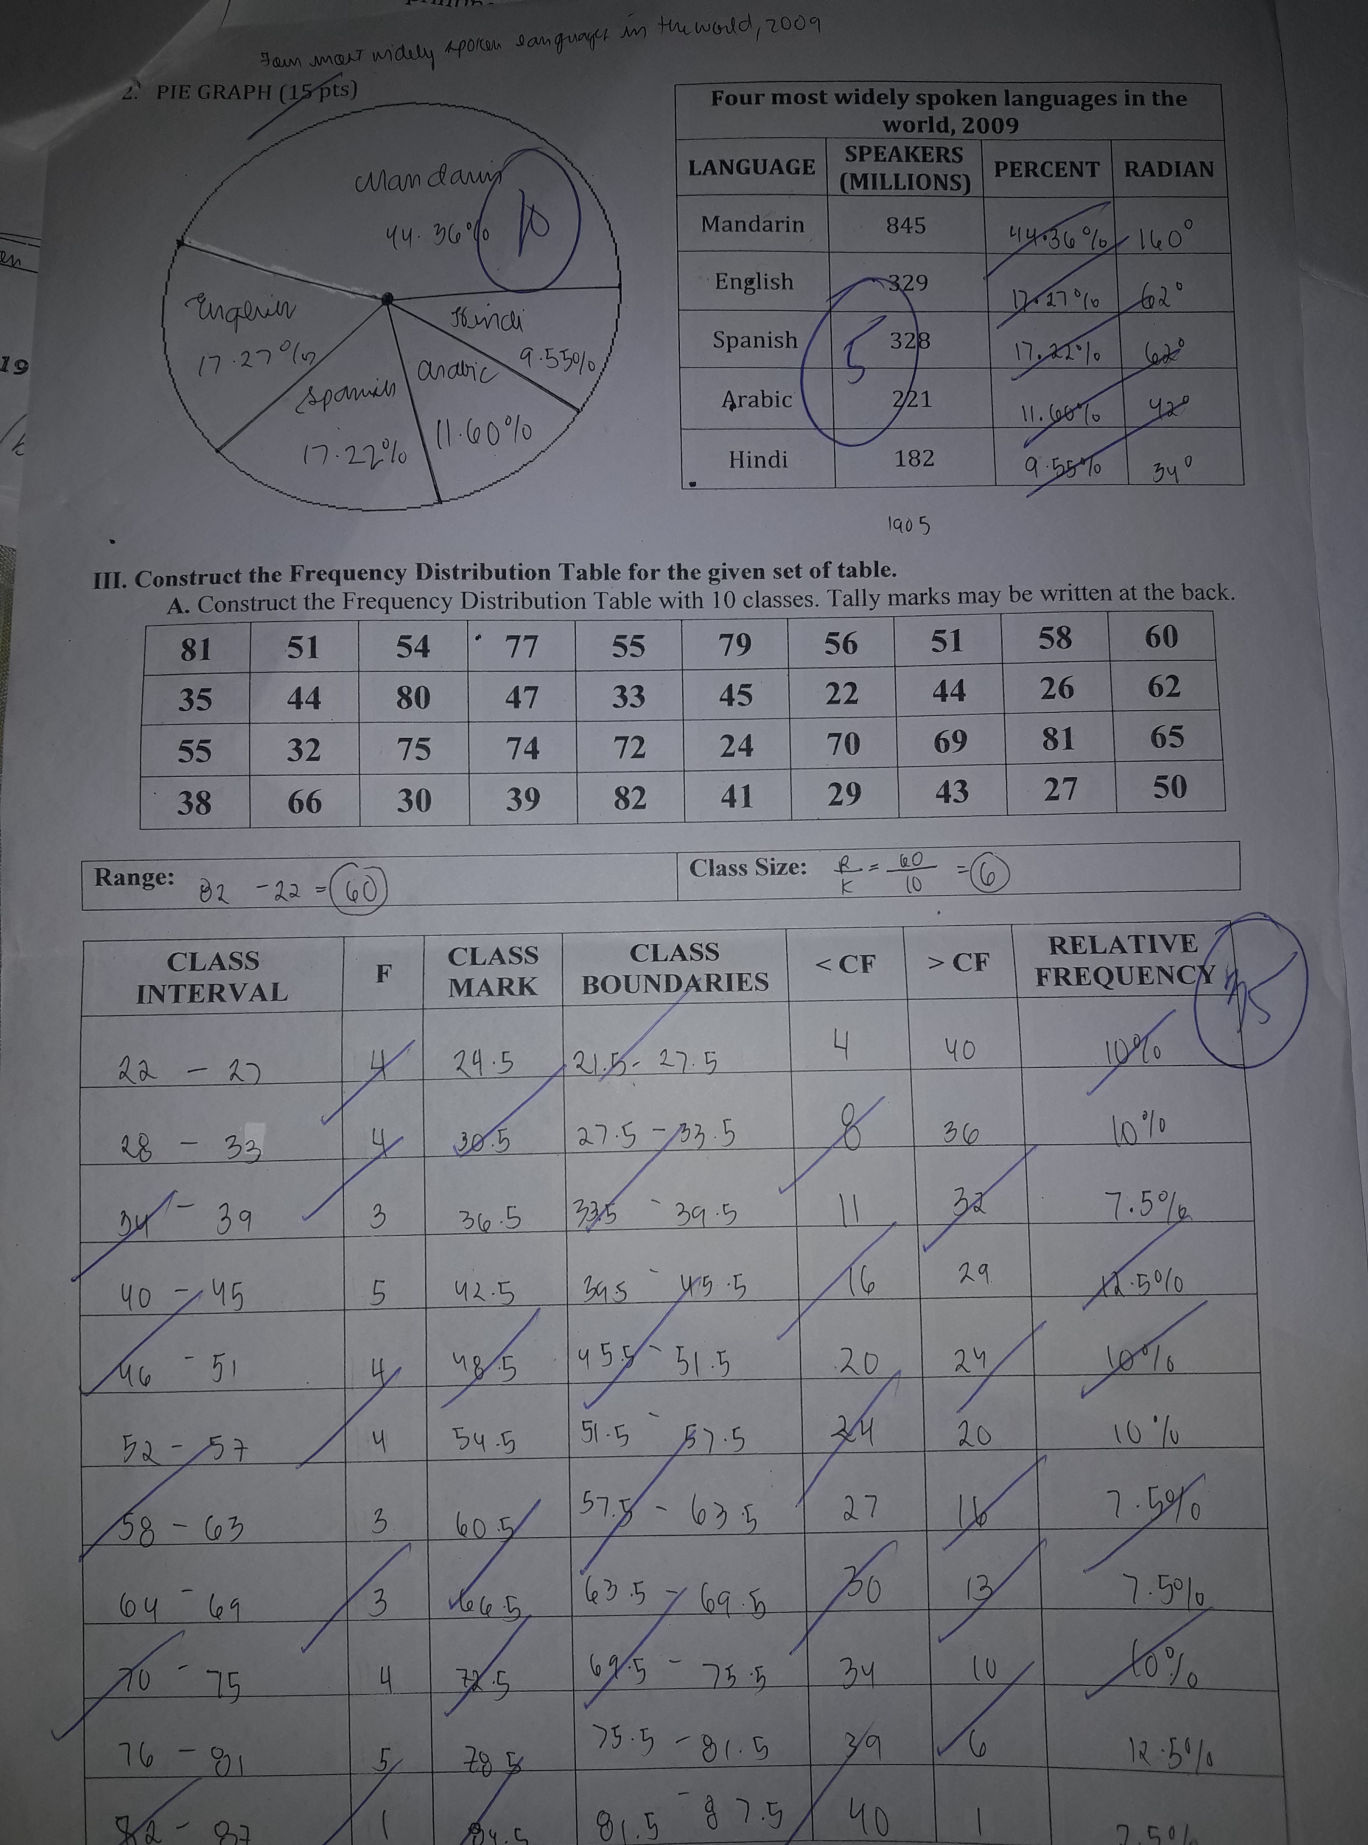 Four most widely spoken languages in the world, 2009
2. PIE GRAPH (15 pts)
Mandarin
44.36%
10
English
17.27%
Spanish
17.22%
Arabic
11.60%
Hindi
9.55%
Four most widely spoken languages in the
world, 2009
LANGUAGE SPEAKERS (MILLIONS) PERCENT RADIAN
Mandarin 845 44.36% 160°
English 329 17.27% 62°
Spanish 328 17.22% 62°
Arabic 221 11.60% 42°
Hindi 182 9.55% 34°
5
1905
19
III. Construct the Frequency Distribution Table for the given set of table.
A. Construct the Frequency Distribution Table with 10 classes. Tally marks may be written at the back.
81 51 54 77 55 79 56 51 58 60
35 44 80 47 33 45 22 44 26 62
55 32 75 74 72 24 70 69 81 65
38 66 30 39 82 41 29 43 27 50
Range: 82 - 22 = 60
Class Size: R/K = 60/10 = 6
CLASS INTERVAL F CLASS MARK CLASS BOUNDARIES < CF > CF RELATIVE FREQUENCY
22 - 27 4 24.5 21.5 - 27.5 4 40 10%
28 - 33 4 30.5 27.5 - 33.5 8 36 10%
34 - 39 3 36.5 33.5 - 39.5 11 32 7.5%
40 - 45 5 42.5 39.5 - 45.5 16 29 12.5%
46 - 51 4 48.5 45.5 - 51.5 20 24 10%
52 - 57 4 54.5 51.5 - 57.5 24 20 10%
58 - 63 3 60.5 57.5 - 63.5 27 16 7.5%
64 - 69 3 66.5 63.5 - 69.5 30 13 7.5%
70 - 75 4 72.5 69.5 - 75.5 34 10 10%
76 - 81 5 78.5 75.5 - 81.5 39 6 12.5%
82 - 87 1 84.5 81.5 - 87.5 40 1 2.5%